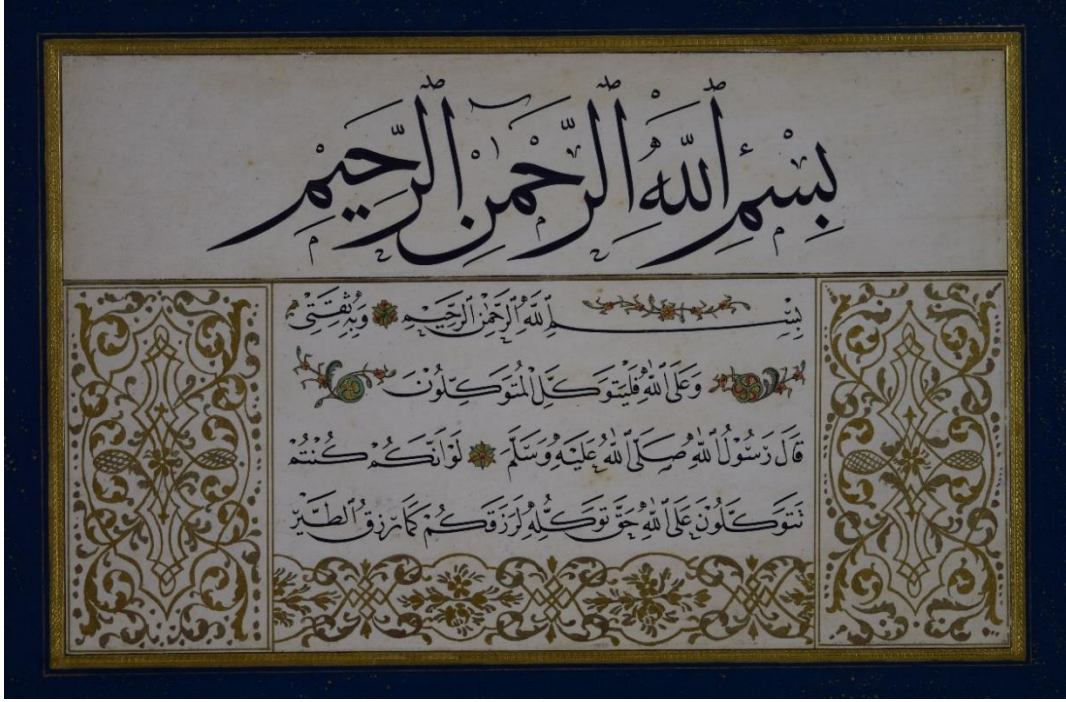 بِسْمِ ٱللَّهِ ٱلرَّحْمٰنِ ٱلرَّحِيمِ
بِسْمِ ٱللَّهِ ٱلرَّحْمٰنِ ٱلرَّحِيمِ وَبِهِ ثِقَتِى
وَعَلَى ٱللّٰهِ فَلْيَتَوَكَّلِ الْمُتَوَكِّلُوْنَ
قَالَ رَسُوْلُ ٱللّٰهِ صَلَّى ٱللّٰهُ عَلَيْهِ وَسَلَّمَ لَوْ اَنَّكُمْ كُنْتُمْ
تَتَوَكَّلُوْنَ عَلَى ٱللّٰهِ حَقَّ تَوَكُّلِهِ لَرَزَقَكُمْ كَمَا يَرْزُقُ ٱلطَّيْرَ